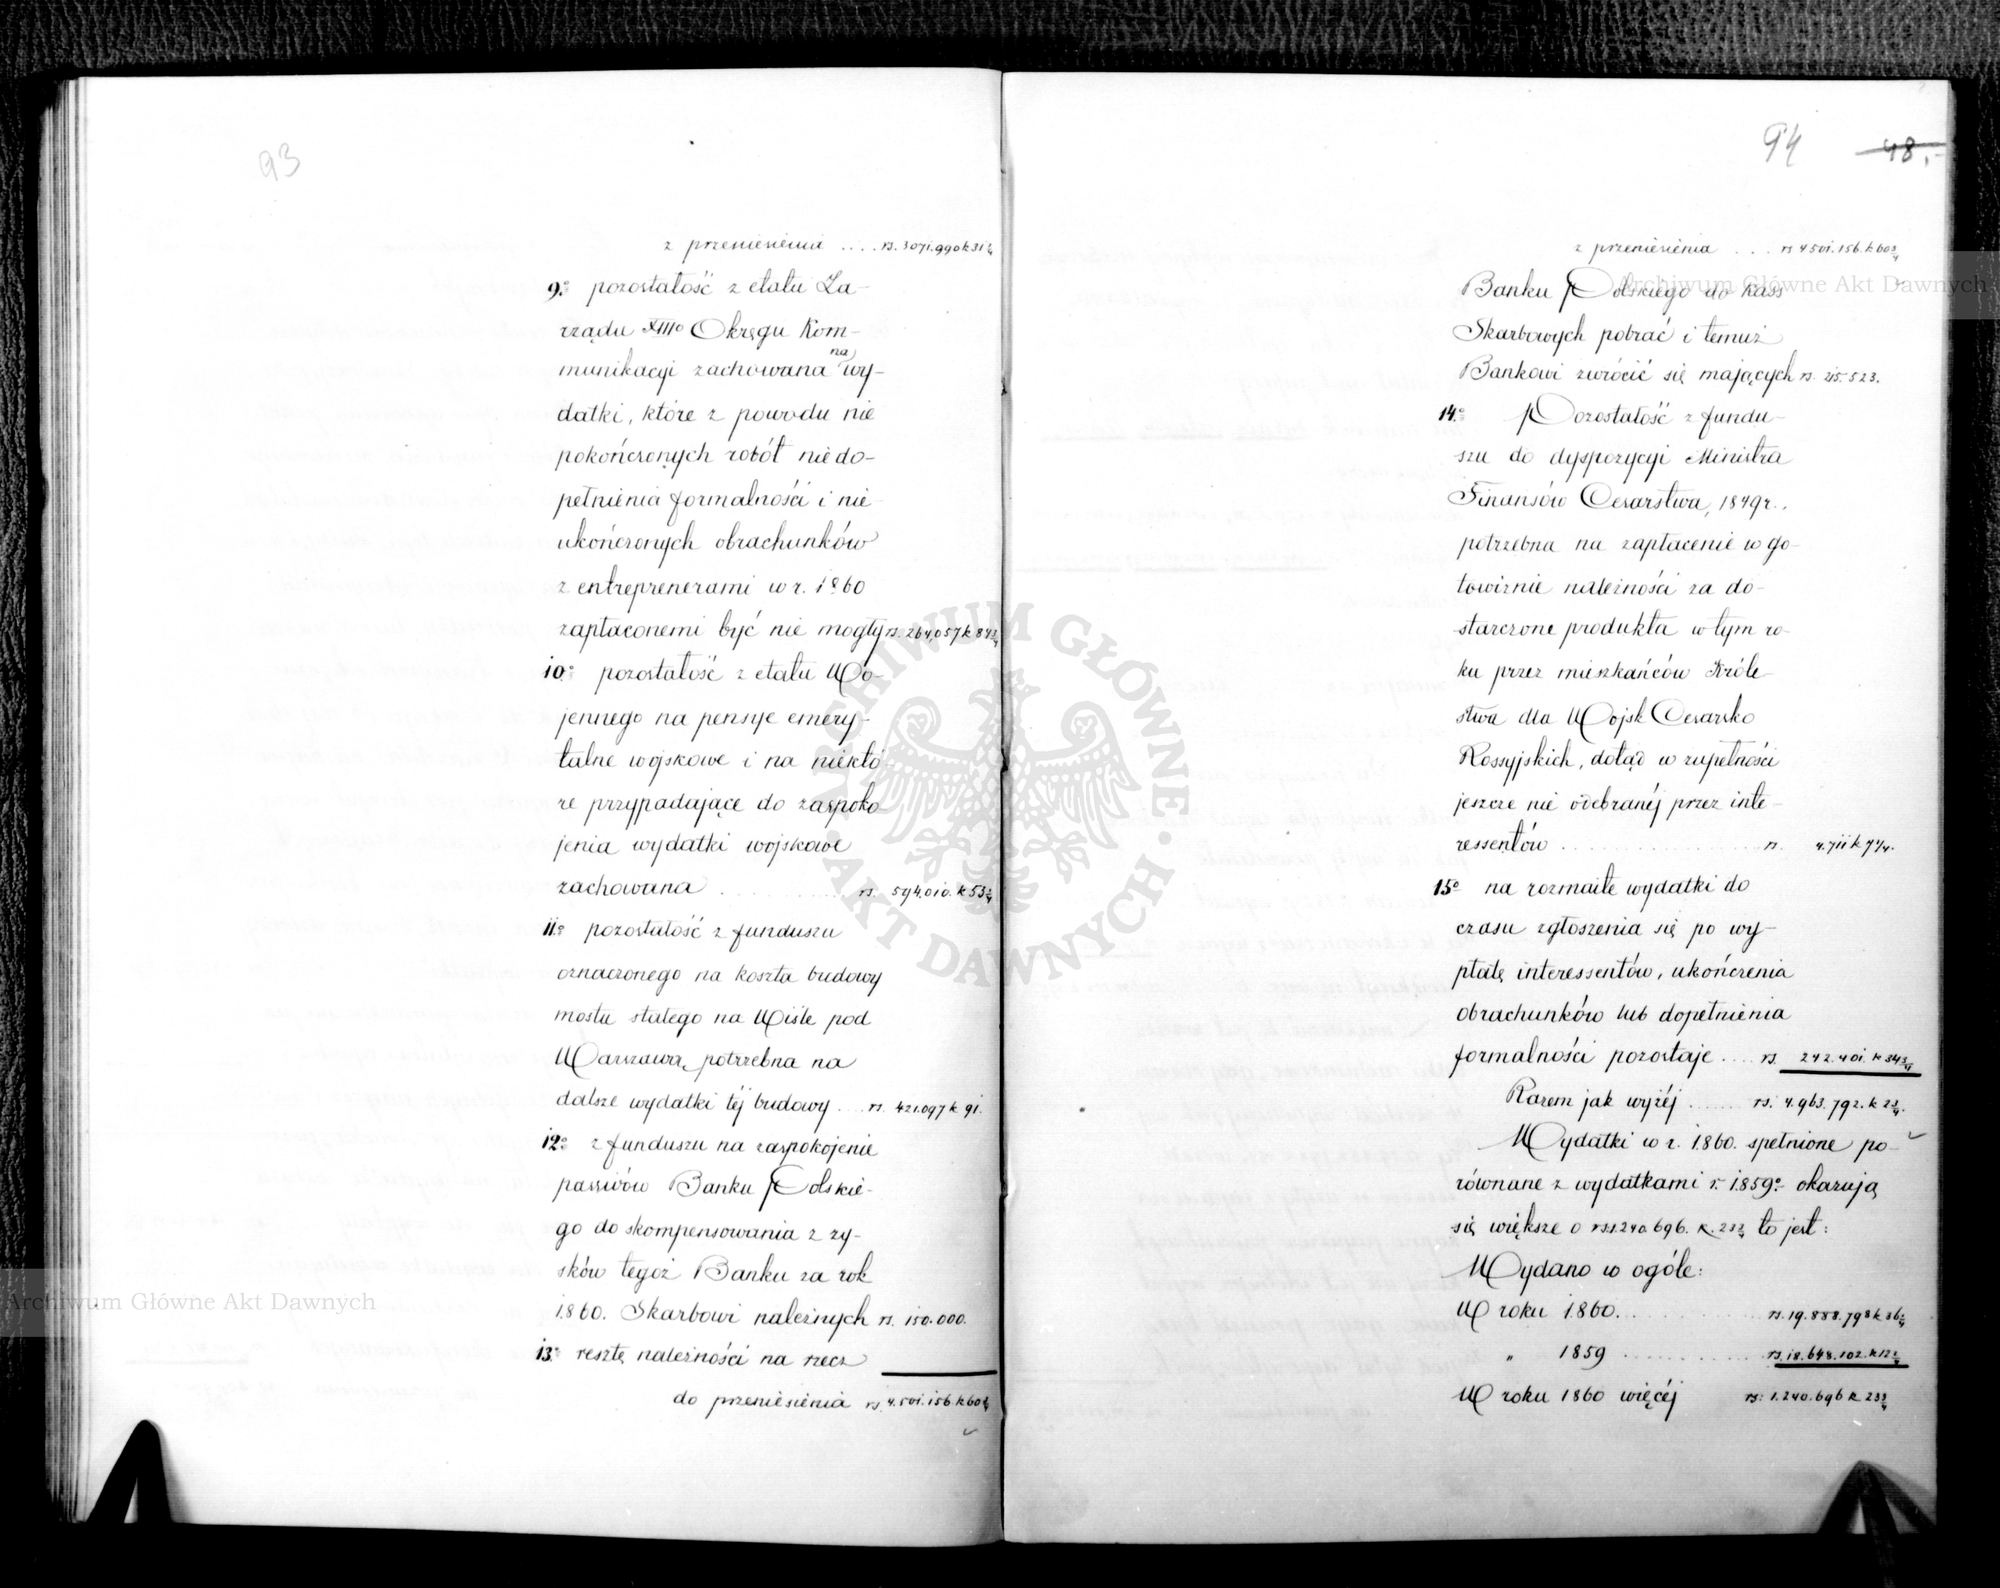 93
z przeniesienia .... rs. 3071.990 k 31 3/4
9o pozostałość z etatu Za-
rządu XIIIo Okręgu Kom-
munikacyi zachowana na wy-
datki, które z powodu nie
pokończonych robót niedo-
pełnienia formalności i nie
ukończonych obrachunków
z entreprenerami w r. 1860
zapłaconemi być nie mogły rs. 264,057 k 84 3/4
10o pozostałość z etatu Wo-
jennego na pensye emery-
talne wojskowe i na niektó-
re przypadające do zaspoko-
jenia wydatki wojskowe
zachowana ........ rs. 594.010. k 53 3/4
11o pozostałość z funduszu
oznaczonego na koszta budowy
mostu stałego na Wiśle pod
Warszawą, potrzebna na
dalsze wydatki téj budowy ... rs. 421.097 k 91.
12o z funduszu na zaspokojenie
passivów Banku Polskie-
go do skompensowania z zy-
sków tegoż Banku za rok
1860. Skarbowi należnych rs. 150.000.
13o resztę należności na rzecz
do przeniesienia rs. 4.501.156. k 60 3/4
94 48.
z przeniesienia ... rs 4501.156 k 60 3/4
Banku Polskiego do Kass
Skarbowych pobrać i temuż
Bankowi zwrócić się mających rs. 215.523.
14o Pozostałość z fundu-
szu do dyspozycyi Ministra
Finansów Cesarstwa, 1849 r.,
potrzebna na zapłacenie w go-
towiznie należności za do-
starczone produkta w tym ro-
ku przez mieszkańców Króle-
stwa dla Wojsk Cesarsko
Rossyjskich, dotąd w zupełności
jeszcze nie odebranéj przez inte-
ressentów .................... rs. 4.711 k 7 1/4.
15o na rozmaite wydatki do
czasu zgłoszenia się po wy-
płatę interessentów, ukończenia
obrachunków lub dopełnienia
formalności pozostaje .... rs. 242.401. k 34 3/4
Razem jak wyżéj ...... rs: 4.963.792. k 2 3/4.
Wydatki w r. 1860. spełnione po-
równane z wydatkami r. 1859o okazują
się większe o rs 1.240.696. k. 23 3/4 to jest:
Wydano w ogóle:
W roku 1860. .............. rs. 19.888.798 k 36 1/4
" 1859 .............. rs. 18.648.102. k 12 2/4
W roku 1860 więcéj rs: 1.240.696 k 23 3/4
Archiwum Główne Akt Dawnych
Archiwum Główne Akt Dawnych
ARCHIWUM GŁÓWNE · AKT DAWNYCH ·